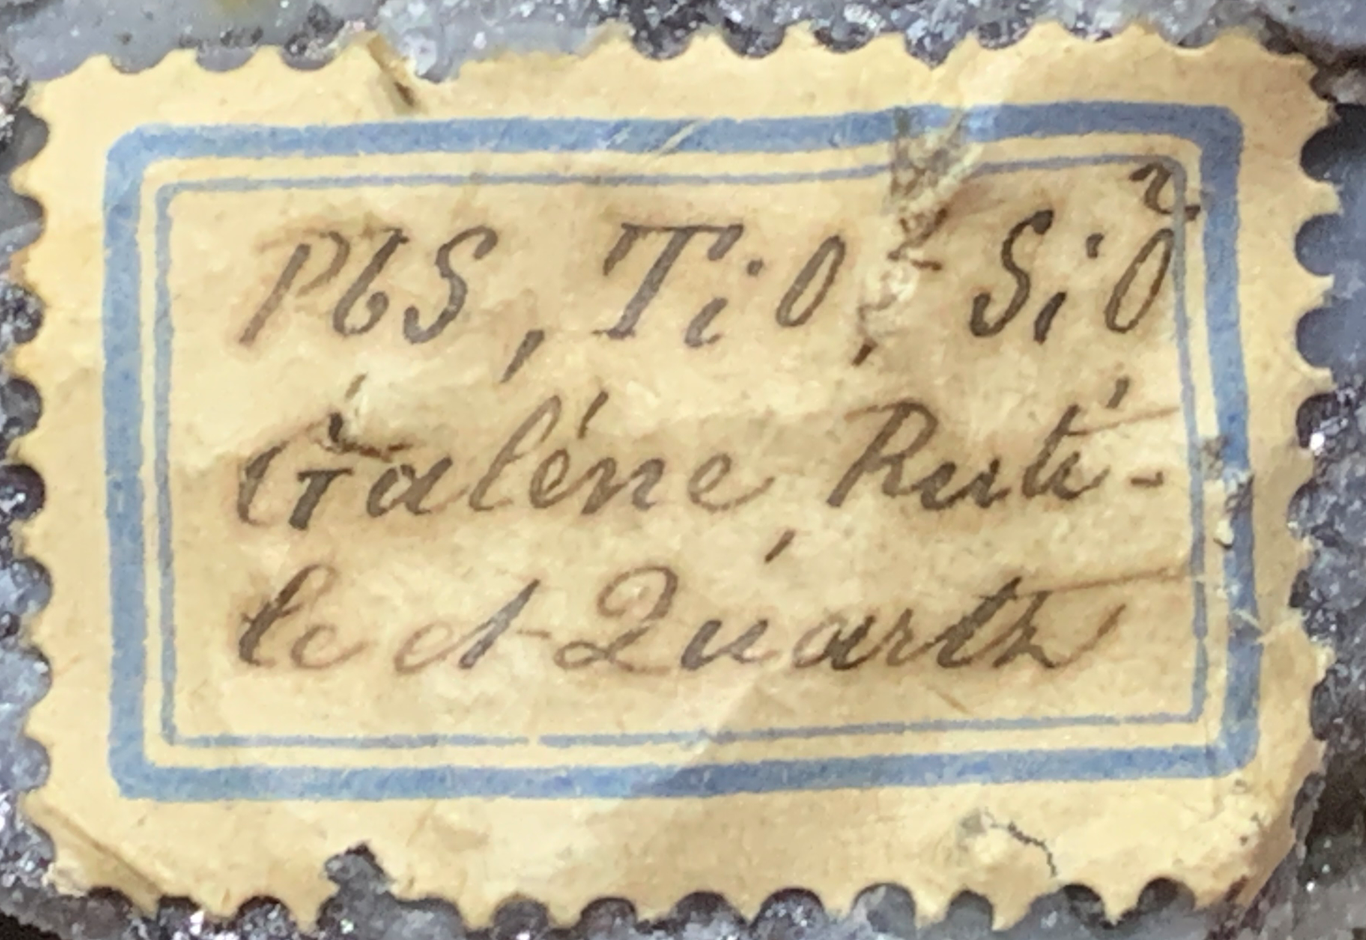 PbS, TiO², SiO²
Galéne, Ruti-
le et Quartz